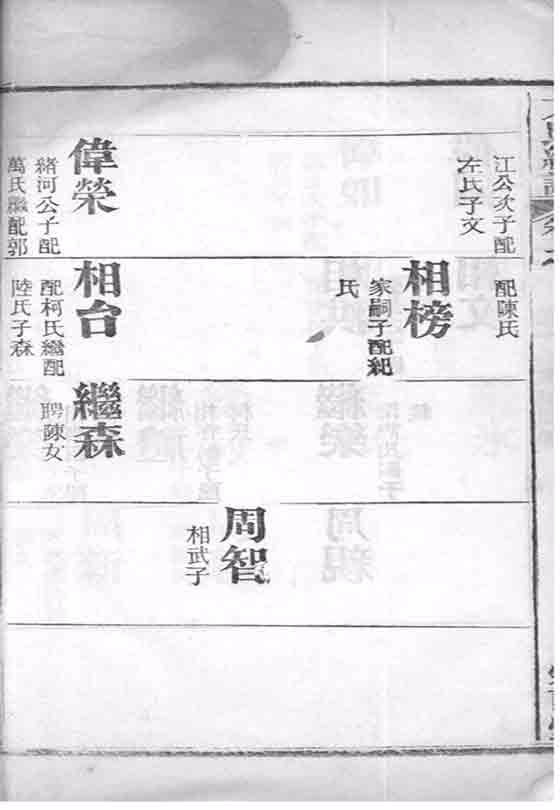 江公次子配
左氏子文
偉榮
緒河公子配
萬氏繼配郭
配陳氏
相榜
家嗣子配紀
氏
相台
配柯氏繼配
陸氏子森
繼森
聘陳女
周智
相武子